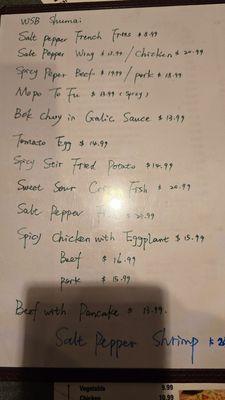 WSB Shumai
Salt pepper French Fries $8.99
Salt Pepper Wing $12.99 / Chicken $20.99
Spicy Peper Beef $19.99 / pork $18.99
Mapo To Fu $13.99 (Spicy)
Bok Choy in Gralic Sauce $13.99
Tomato Egg $14.99
Spicy Stir Fried Potato $14.99
Sweet Sour Crispy Fish $20.99
Salt Pepper
Spicy Chicken with Eggplant $15.99
Beef $16.99
pork $15.99
Beef with Pancake $13.99.
Salt Pepper Shrimp $
Vegetable 9.99
Chicken